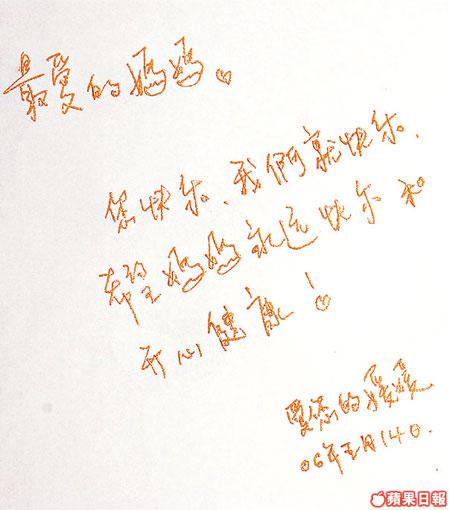 最愛的媽媽。
您快乐、我們就快乐。
希望媽媽永远快乐和
开心健康！
愛您的媛媛
06年5月14日.
蘋果日報